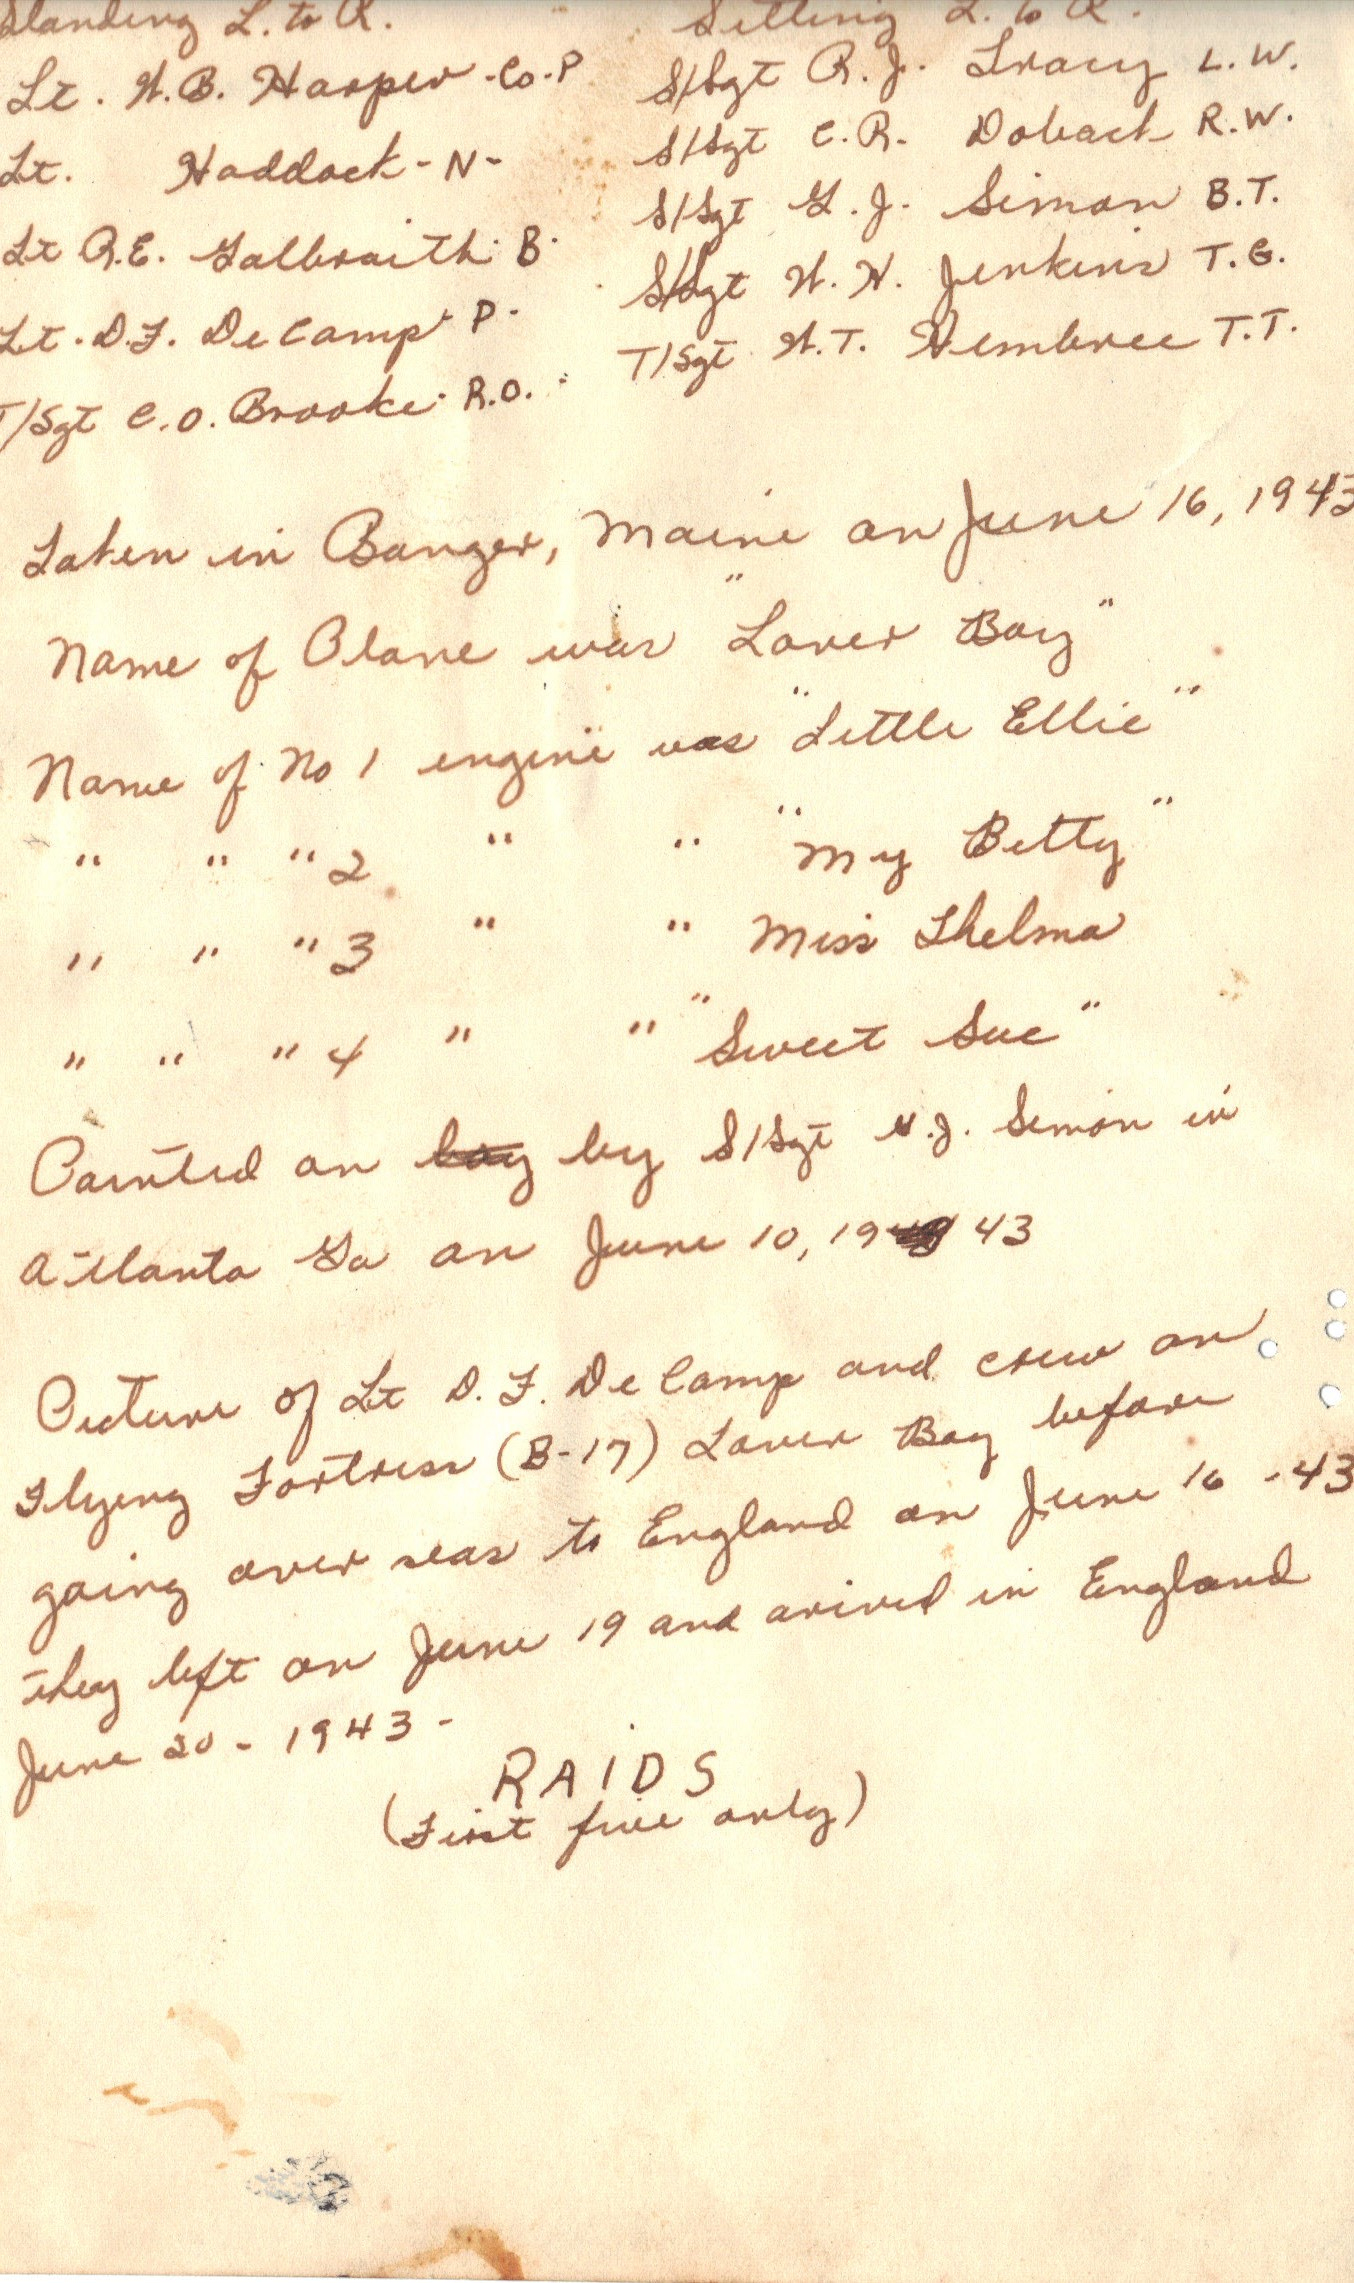 Standing L. to R.
Lt. W.B. Harper -Co-P
Lt. Haddock - N-
Lt R.E. Galbraith - B-
Lt. D.F. DeCamp - P-
T/Sgt C.O. Brooke - R.O.
Sitting L. to R.
S/Sgt R.J. Tracy L.W.
S/Sgt C.R. Doback R.W.
S/Sgt G.J. Simon B.T.
S/Sgt W.H. Jenkins T.G.
T/Sgt W.T. Hembree T.T.
Taken in Banger, Maine on June 16, 1943
Name of Plane was "Lover Boy"
Name of No 1 engine was "Little Ellie"
" " " 2 " " "My Betty"
" " " 3 " " Miss Thelma
" " " 4 " " "Sweet Sue"
Painted on by S/Sgt J. Simon in
Atlanta Ga on June 10, 19 43
Picture of Lt D.F. DeCamp and crew on
Flying Fortress (B-17) Lover Boy before
going over seas to England on June 16 -43
they left on June 19 and arived in England
June 20 - 1943 -
RAIDS
(First five only)